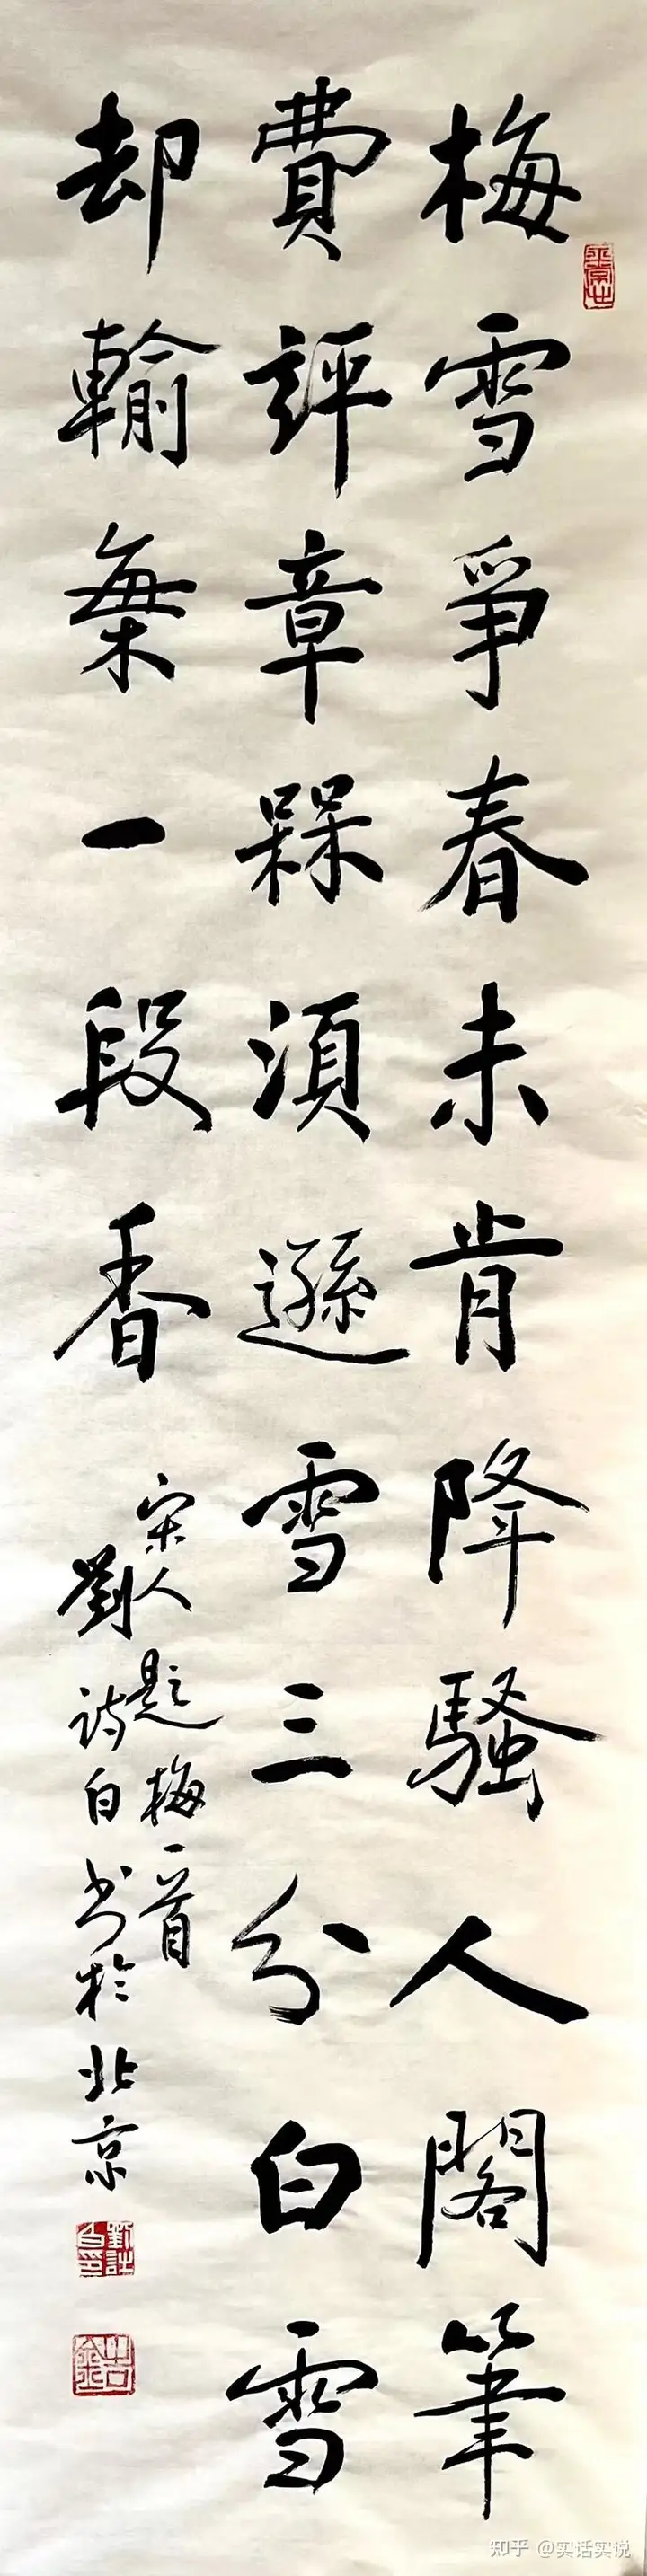 梅雪爭春未肯降騷人閣筆
費評章槑須遜雪三分白雪
却輸梅一段香
宋人題梅一首
劉詩白书於北京
知乎 @实话实说